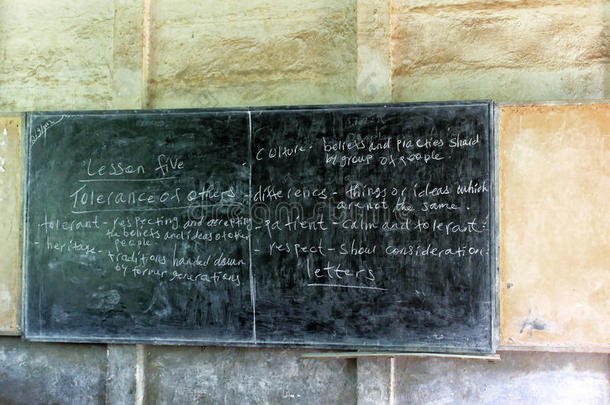 Lesson five
Tolerance of others
tolerant - respecting and accepting
the beliefs and ideas of other
people
- heritage - traditions handed down
by former generations
- Culture - beliefs and practies shard
by group of people
- difference - things or ideas which
are not the same.
- patient - calm and tolerant.
- respect - show consideration.
letters